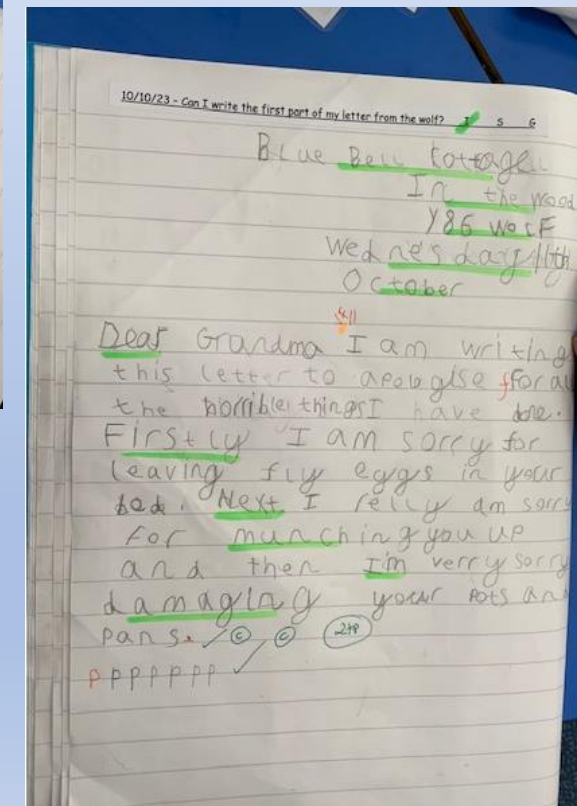 10/10/23 - Can I write the first part of my letter from the wolf? I S G
Blue Bell Cottage
In the wood
Y86 WOLF
Wednesday 11th
October
Dear Grandma I am writing
this letter to apologise for all
the horrible things I have done.
Firstly I am sorry for
leaving fly eggs in your
bed. Next I relly am sorry
For munching you up
and then I'm verry sorry
damaging your pots and
pans.
P P P P P P P